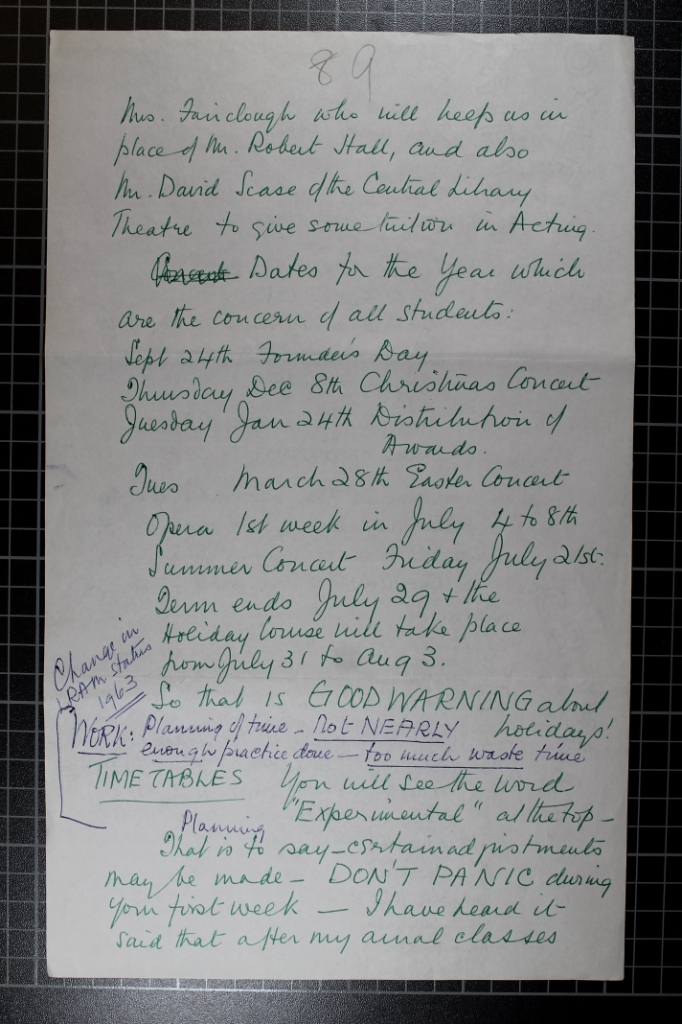 89
Mrs. Fairclough who will help us in
place of Mr. Robert Hall, and also
Mr. David Scase of the Central Library
Theatre to give some tuition in Acting.
Dates for the Year which
are the concern of all students:
Sept 24th Founder's Day
Thursday Dec 8th Christmas Concert
Tuesday Jan 24th Distribution of
Awards.
Tues March 28th Easter Concert
Opera 1st week in July 4 to 8th
Summer Concert Friday July 21st.
Term ends July 29 + the
Holiday Course will take place
from July 31 to Aug 3.
Change in
RAM status
1963
So that is GOOD WARNING about
holidays!
WORK: Planning of time - Not NEARLY
enough practice done - too much waste time
TIMETABLES You will see the word
"Experimental" at the top -
Planning
That is to say - certain adjustments
may be made - DON'T PANIC during
your first week - I have heard it
said that after my aural classes